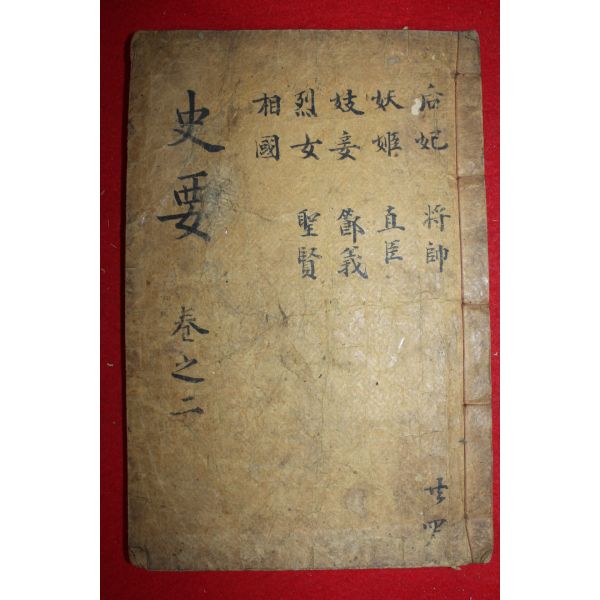 后妃 将帥
妖姬 直臣
妓妾 節義
烈女 聖賢
相國
史要 卷之二
共四